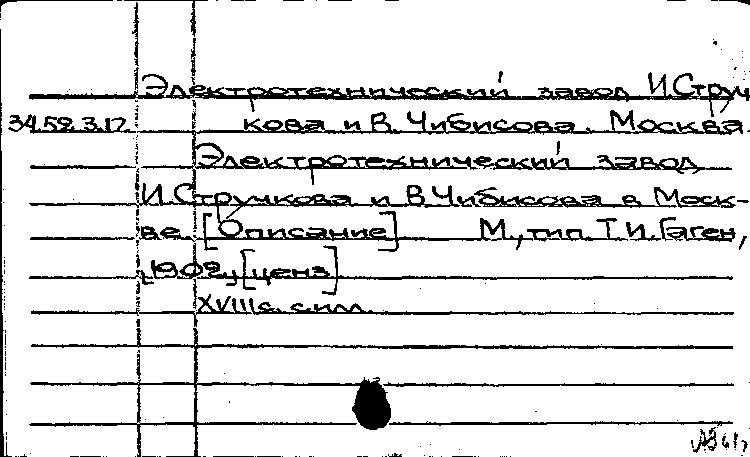 Электротехнический завод И. Струч
34.59.3.17. кова и В. Чибисова. Москва.
Электротехнический завод
И. Стручкова и В. Чибисова в Моск-
ве. [Описание] М., тип. Т. И. Гаген,
[1902] [ценз]
XVIII с. с илл.